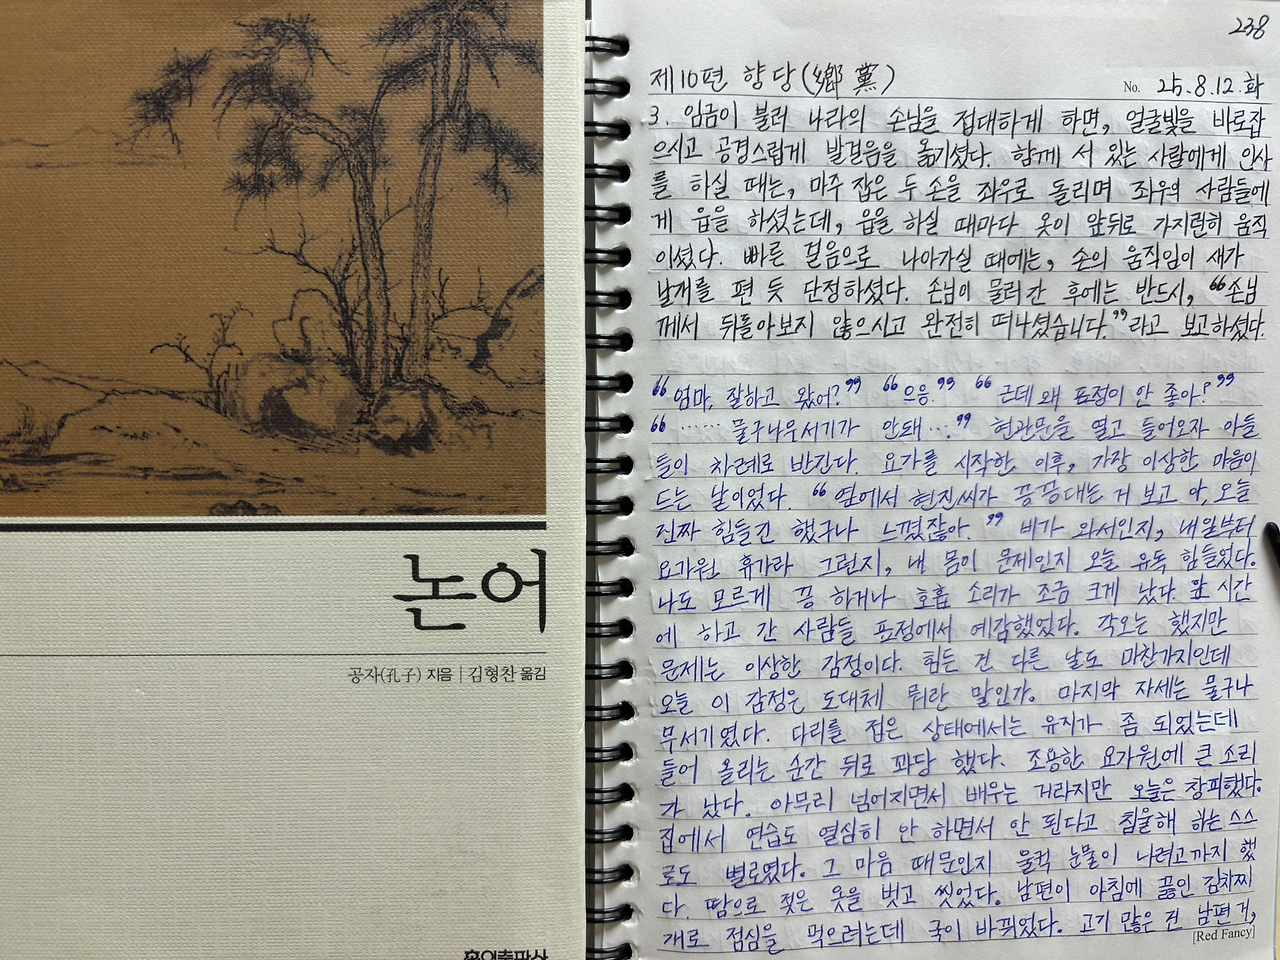 논어
공자(孔子) 지음 | 김형찬 옮김
홍익출판사
238
제10편 향당(鄕黨)
No. 25.8.12.화
3. 임금이 불러 나라의 손님을 접대하게 하면, 얼굴빛을 바로잡
으시고 공경스럽게 발걸음을 옮기셨다. 함께 서 있는 사람에게 인사
를 하실 때는, 마주 잡은 두 손을 좌우로 돌리며 좌우의 사람들에
게 읍을 하셨는데, 읍을 하실 때마다 옷이 앞뒤로 가지런히 움직
이셨다. 빠른 걸음으로 나아가실 때에는, 손의 움직임이 새가
날개를 편 듯 단정하셨다. 손님이 물러간 후에는 반드시, “손님
께서 뒤돌아보지 않으시고 완전히 떠나셨습니다.”라고 보고하셨다.
“엄마, 잘하고 왔어?” “으응.” “근데 왜 표정이 안 좋아?”
“…… 물구나무서기가 안돼….” 현관문을 열고 들어오자 아들
들이 차례로 반긴다. 요가를 시작한 이후, 가장 이상한 마음이
드는 날이었다. “옆에서 현진씨가 끙끙대는 거 보고 아, 오늘
진짜 힘들긴 했구나 느꼈잖아.” 비가 와서인지, 내일부터
요가원 휴가라 그런지, 내 몸이 문제인지 오늘 유독 힘들었다.
나도 모르게 끙 하거나 호흡 소리가 조금 크게 났다. 앞 시간
에 하고 간 사람들 표정에서 예감했었다. 각오는 했지만
문제는 이상한 감정이다. 힘든 건 다른 날도 마찬가지인데
오늘 이 감정은 도대체 뭐란 말인가. 마지막 자세는 물구나
무서기였다. 다리를 접은 상태에서는 유지가 좀 되었는데
들어 올리는 순간 뒤로 꽈당 했다. 조용한 요가원에 큰 소리
가 났다. 아무리 넘어지면서 배우는 거라지만 오늘은 창피했다.
집에서 연습도 열심히 안 하면서 안 된다고 침울해 하는 스스
로도 별로였다. 그 마음 때문인지 울컥 눈물이 나려고까지 했
다. 땀으로 젖은 옷을 벗고 씻었다. 남편이 아침에 끓인 김치찌
개로 점심을 먹으려는데 국이 바뀌었다. 고기 많은 건 남편 거,
[Red Fancy]